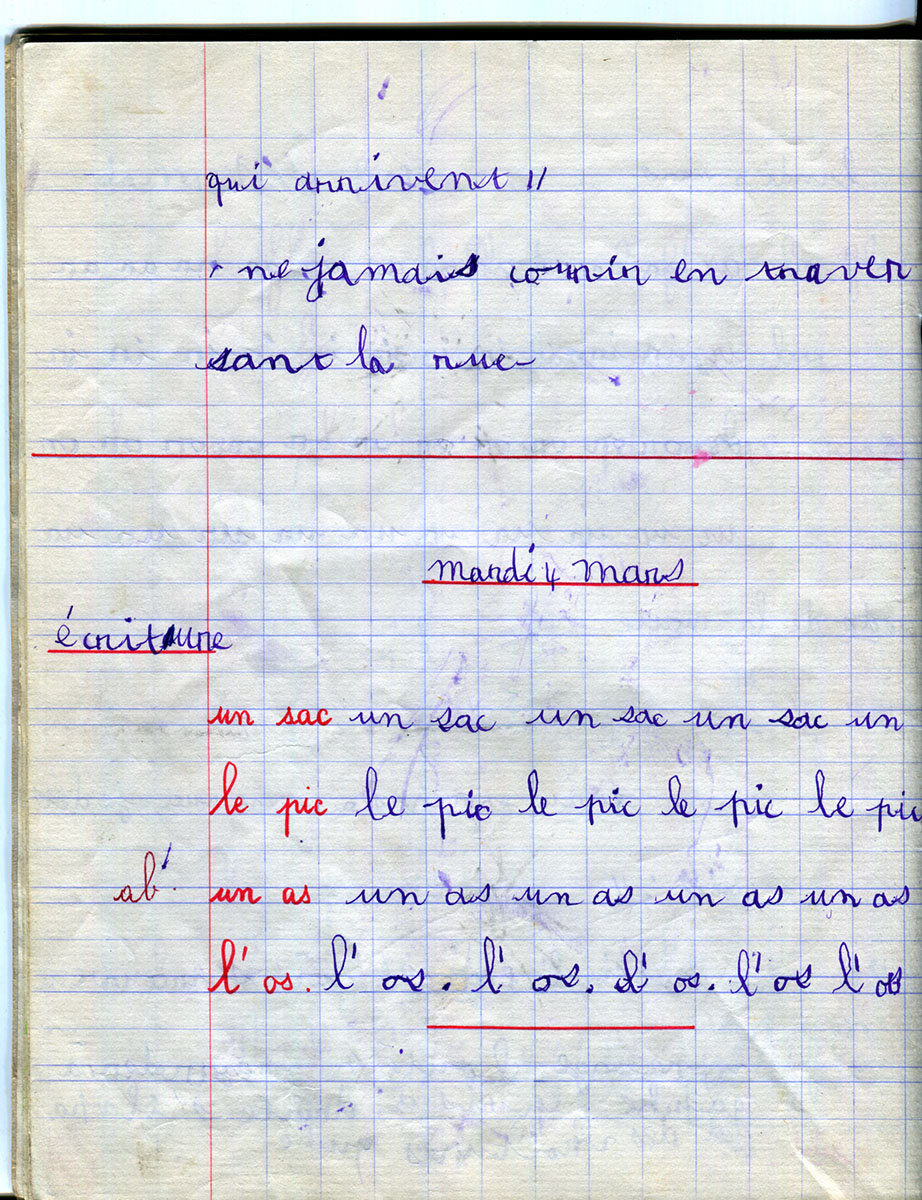 qui arrivent //
ne jamais courir en traver
sant la rue
mardi 4 mars
écriture
un sac un sac un sac un sac un
le pic le pic le pic le pic le pic
ab. un as un as un as un as un as
l'os. l'os. l'os. l'os. l'os l'os